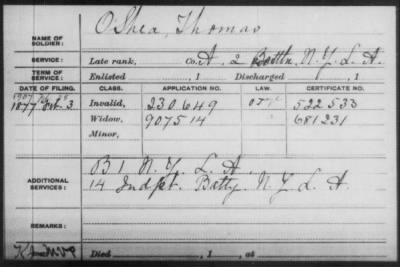 O'Shea, Thomas
NAME OF SOLDIER:
SERVICE: Late rank, Co. A, 2 Battn. N.Y. L. A.
TERM OF SERVICE: Enlisted , 1 Discharged , 1
DATE OF FILING. CLASS. APPLICATION NO. LAW. CERTIFICATE NO.
1877 Oct. 3 Invalid, 230.649 522 533
Widow, 907514 681231
Minor,
B 1 N.Y. L. A.
ADDITIONAL SERVICES: 14 Indpt. Batty. N.Y. L. A.
REMARKS:
Died , 1 , at